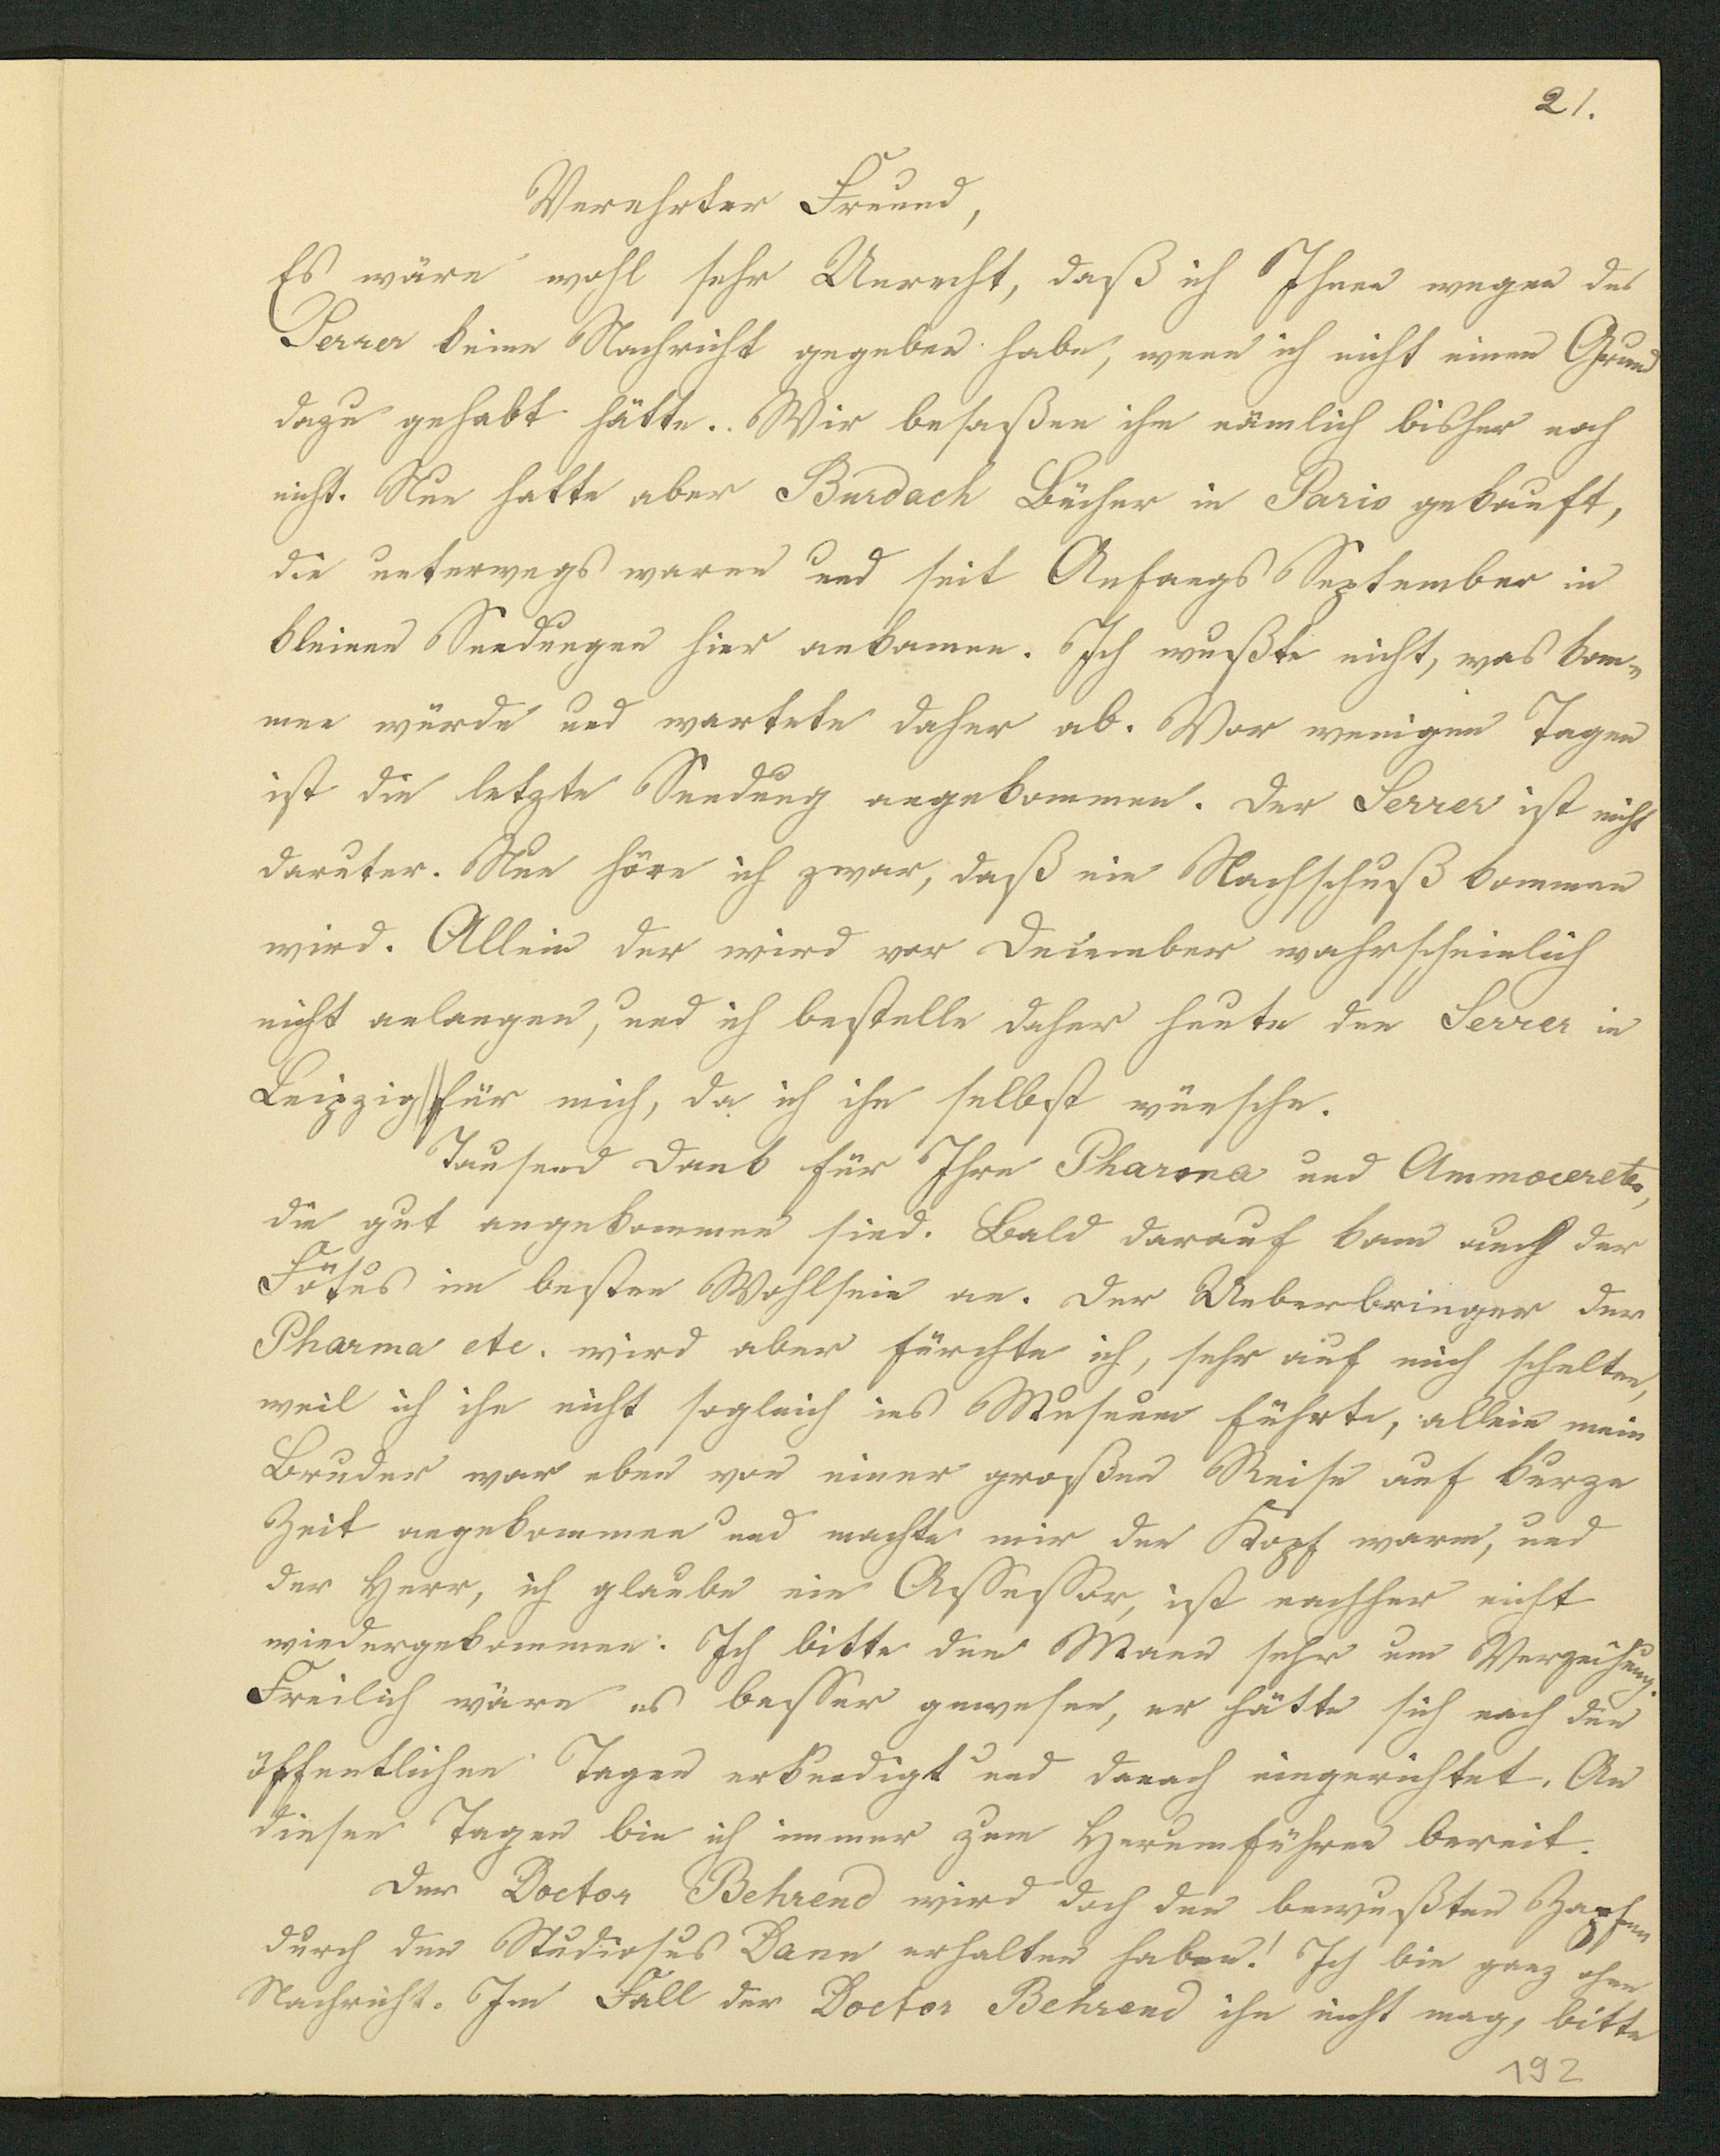 21.
Verehrter Freund,
Es wäre wohl sehr Unrecht, daß ich Ihnen wegen des
Serrer keine Nachricht gegeben habe, wenn ich nicht einen Grund
dazu gehabt hätte. Wir besaßen ihn nämlich bisher noch
nicht. Nun hatte aber Burdach Bücher in Paris gekauft,
die unterwegs waren und seit Anfangs September in
kleinen Sendungen hier ankamen. Ich wußte nicht, was kom-
men würde und wartete daher ab. Vor wenigen Tagen
ist die letzte Sendung angekommen. Der Serrer ist nicht
darunter. Nun höre ich zwar, daß ein Nachschuß kommen
wird. Allein der wird vor December wahrscheinlich
nicht anlangen, und ich bestelle daher heute den Serrer in
Leipzig für mich, da ich ihn selbst wünsche.
Tausend Dank für Ihre Pharma und Ammocerete,
die gut angekommen sind. Bald darauf kam auch der
Fötus im besten Wohlsein an. Der Ueberbringer der
Pharma etc. wird aber fürchte ich, sehr auf mich schelten,
weil ich ihn nicht sogleich ins Museum führte, allein mein
Bruder war eben von einer großen Reise auf kurze
Zeit angekommen und machte mir den Kopf warm, und
der Herr, ich glaube ein Assessor, ist nachher nicht
wiedergekommen. Ich bitte den Mann sehr um Verzeihung.
Freilich wäre es besser gewesen, er hätte sich nach den
öffentlichen Tagen erkundigt und danach eingerichtet. An
diesen Tagen bin ich immer zum Herumführen bereit.
Der Doctor Behrend wird doch den bewußten Zapfen
durch den Studiosus Dann erhalten haben! Ich bin ganz ohne
Nachricht. Im Fall der Doctor Behrend ihn nicht mag, bitte
192